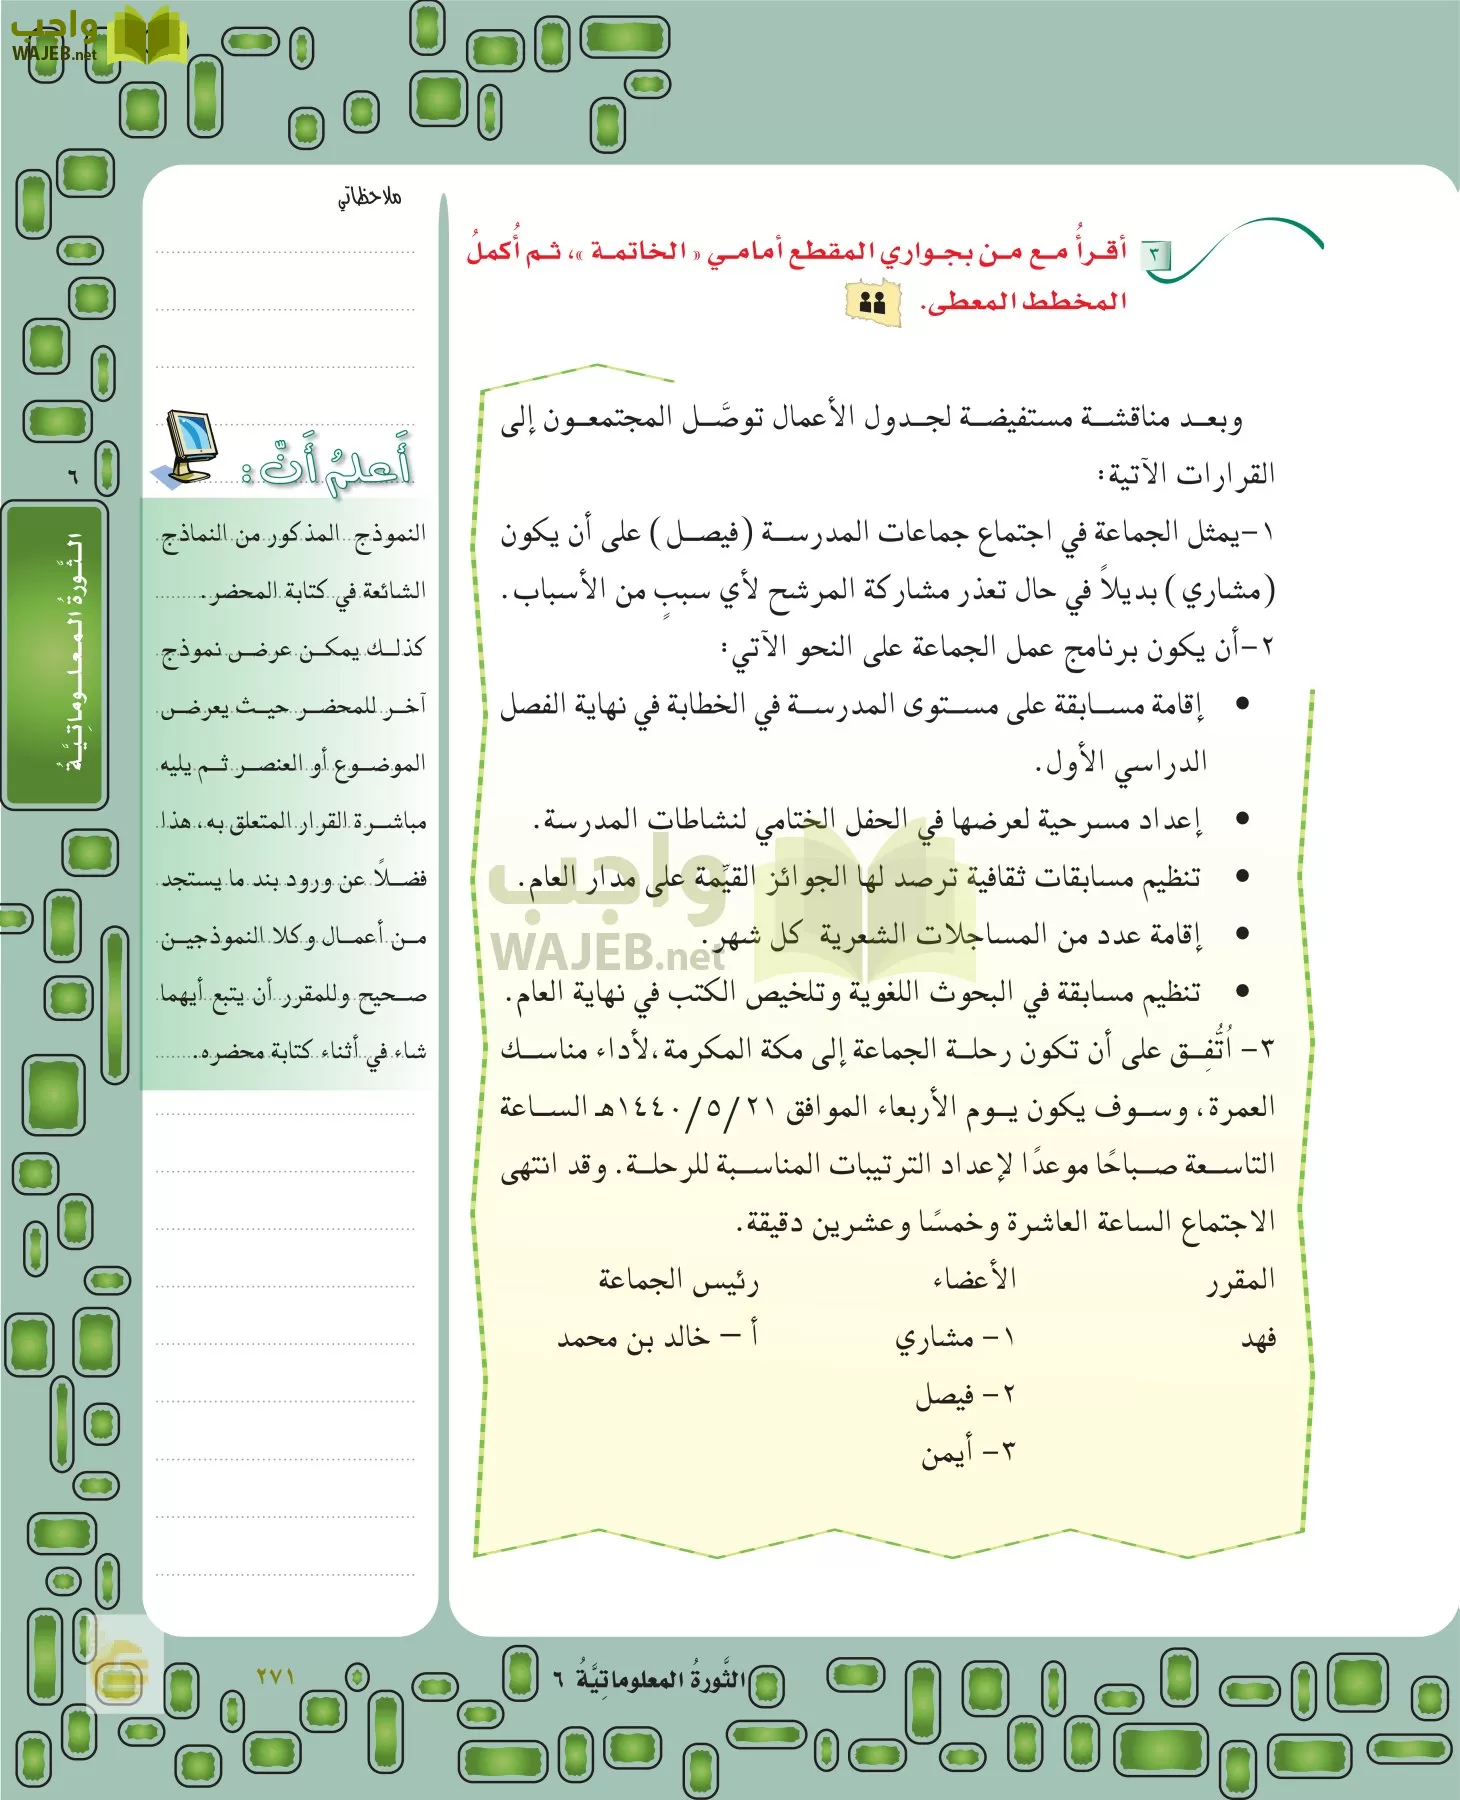 واجب
WAJEB.net
ملاحظاتي
٣ أقرأُ مع من بجواري المقطع أمامي « الخاتمة »، ثم أُكملُ
المخطط المعطى.
وبعد مناقشة مستفيضة لجدول الأعمال توصَّل المجتمعون إلى
القرارات الآتية:
١-يمثل الجماعة في اجتماع جماعات المدرسة (فيصل) على أن يكون
(مشاري) بديلاً في حال تعذر مشاركة المرشح لأي سببٍ من الأسباب.
٢-أن يكون برنامج عمل الجماعة على النحو الآتي:
• إقامة مسابقة على مستوى المدرسة في الخطابة في نهاية الفصل
الدراسي الأول.
• إعداد مسرحية لعرضها في الحفل الختامي لنشاطات المدرسة.
• تنظيم مسابقات ثقافية ترصد لها الجوائز القيِّمة على مدار العام.
• إقامة عدد من المساجلات الشعرية كل شهر.
• تنظيم مسابقة في البحوث اللغوية وتلخيص الكتب في نهاية العام.
٣- اُتُّفِق على أن تكون رحلة الجماعة إلى مكة المكرمة،لأداء مناسك
العمرة، وسوف يكون يوم الأربعاء الموافق ١٤٤٠/٥/٢١هـ الساعة
التاسعة صباحًا موعدًا لإعداد الترتيبات المناسبة للرحلة. وقد انتهى
الاجتماع الساعة العاشرة وخمسًا وعشرين دقيقة.
المقرر الأعضاء رئيس الجماعة
فهد ١- مشاري أ – خالد بن محمد
٢- فيصل
٣- أيمن
واجب
WAJEB.net
أَعلمُ أَنّ:
النموذج المذكور من النماذج
الشائعة في كتابة المحضر.
كذلك يمكن عرض نموذج
آخر للمحضر حيث يعرض
الموضوع أو العنصر ثم يليه
مباشرة القرار المتعلق به، هذا
فضلًا عن ورود بند ما يستجد
من أعمال وكلا النموذجين
صحيح وللمقرر أن يتبع أيهما
شاء في أثناء كتابة محضره.
٦
الثَّورةُ المعلوماتِيَّةُ
الثَّورةُ المعلوماتِيَّةُ ٦
٢٧١